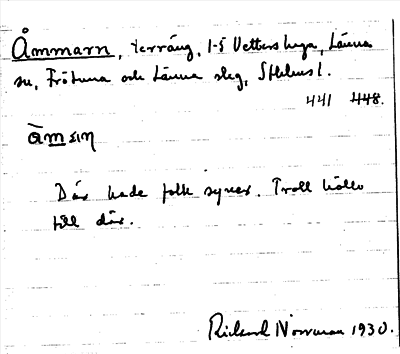 Åmmarn, terräng, 1-5 Vettershaga, Länna
sn, Frötuna och Länna slg, Sthlms l.
441 448.
Där hade folk syner. Troll höllo
till där.
Richard Norrman 1930.